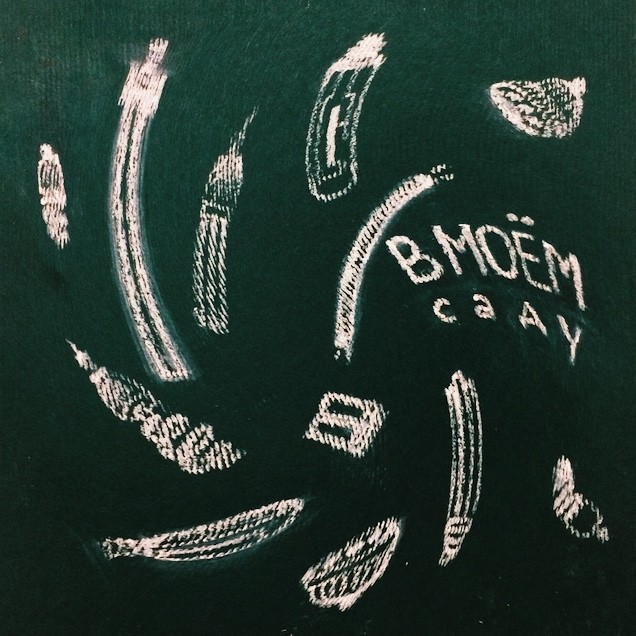 В МОЁМ
саду